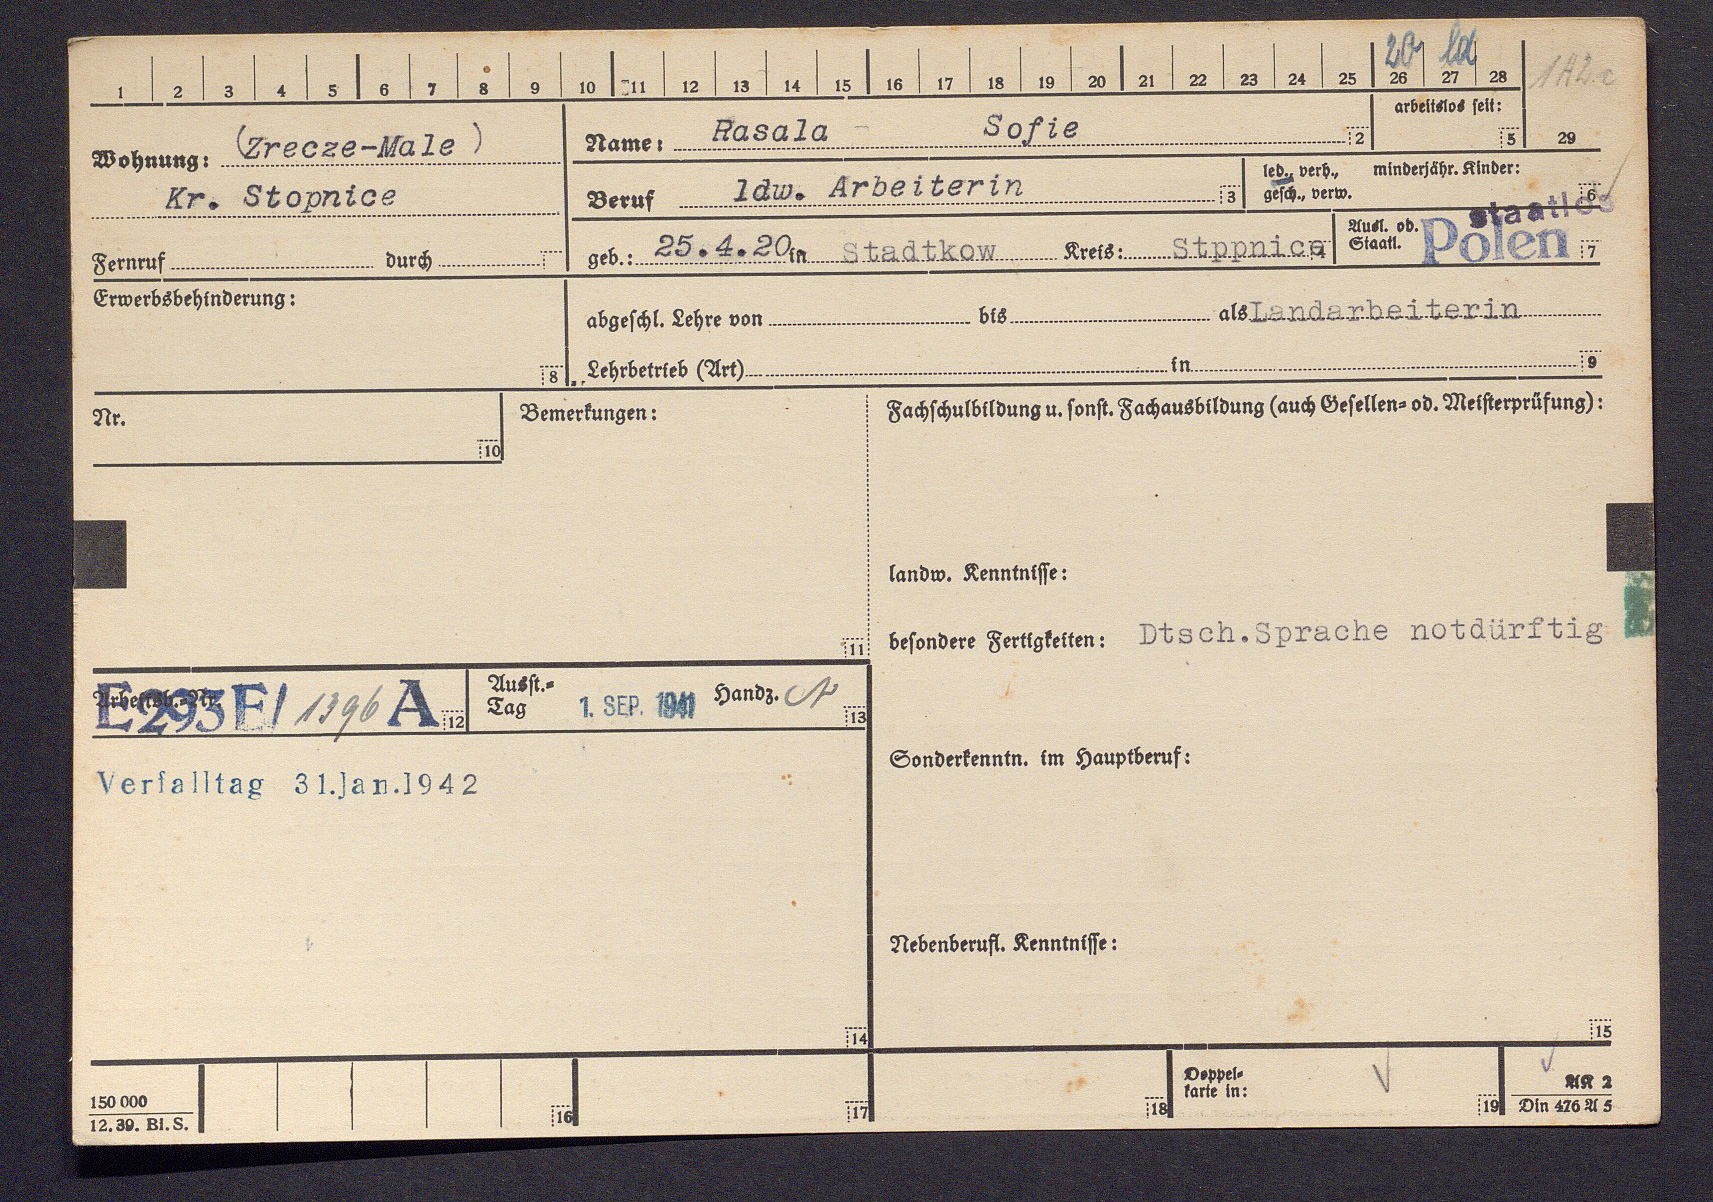 20 ld
1 2 3 4 5 6 7 8 9 10 11 12 13 14 15 16 17 18 19 20 21 22 23 24 25 26 27 28
1A2c
Wohnung: (Zrecze-Male)
Kr. Stopnice
Fernruf durch
Name: Rasala Sofie 2
arbeitslos seit: 5
29
Beruf ldw. Arbeiterin 3
led., verh., gesch., verw.
minderjähr. Kinder: 6
geb.: 25.4.20 in Stadtkow Kreis: Stppnice 4
Ausl. od. Staatl. staatlos Polen 7
Erwerbsbehinderung: 8
abgeschl. Lehre von bis als Landarbeiterin
Lehrbetrieb (Art) in 9
Nr. 10
Bemerkungen: 11
Fachschulbildung u. sonst. Fachausbildung (auch Gesellen- od. Meisterprüfung):
landw. Kenntnisse:
besondere Fertigkeiten: Dtsch.Sprache notdürftig
Arbeitsb.-Nr. E293E/ 1396 A 12
Ausst.-Tag 1. SEP. 1941 Handz. 13
Verfalltag 31.Jan.1942
14
Sonderkenntn. im Hauptberuf:
Nebenberufl. Kenntnisse:
15
150 000
12. 39. Bl. S.
16 17 18
Doppel-
karte in: 19
AK 2
Din 476 A 5